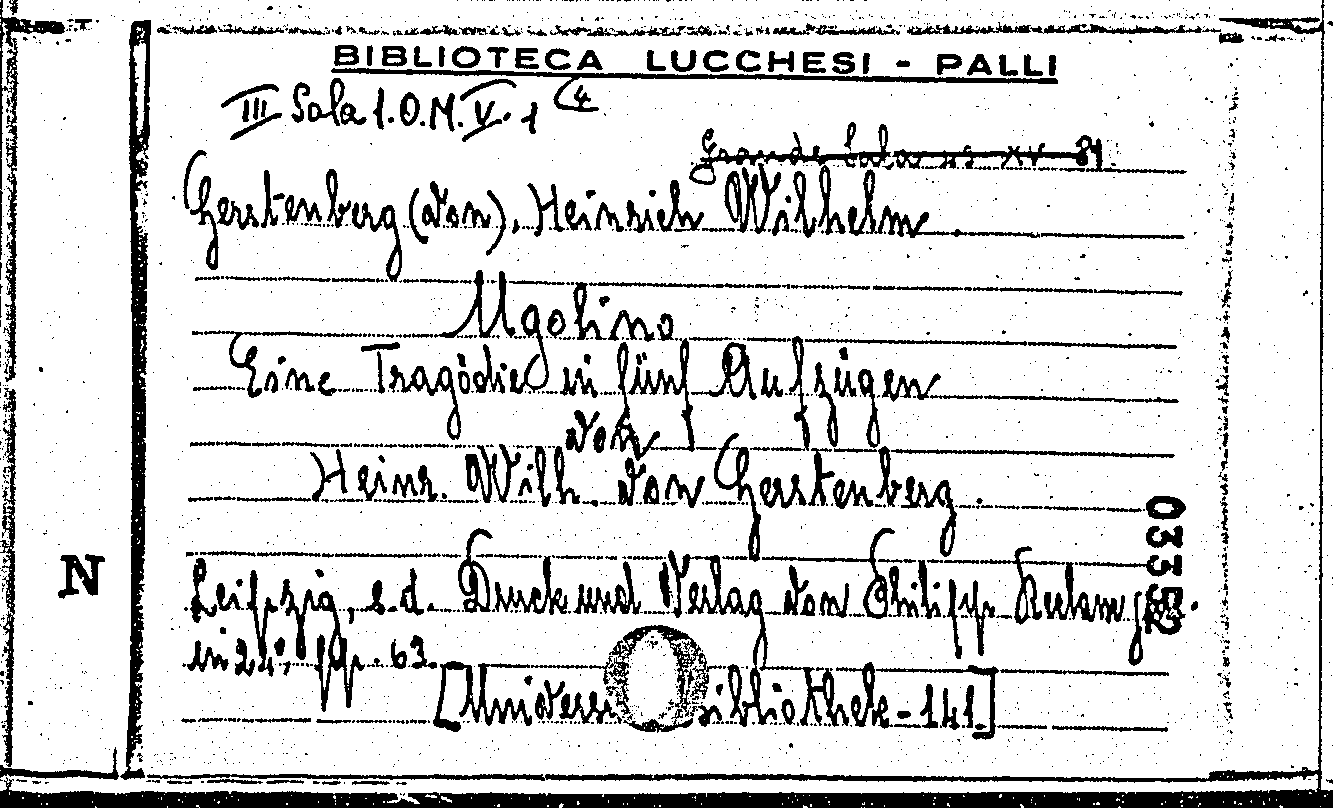 BIBLIOTECA LUCCHESI - PALLI
III Sala 1.O.M.V.1 (4
Grande Sala 49 XV 81
Gerstenberg (von), Heinrich Wilhelm.
Ugolino
Eine Tragödie in fünf Aufzügen
von
Heinr. Wilh. von Gerstenberg.
Leipzig, s.d. Druck und Verlag von Philipp Reclam jr.
in 24°, pp. 63.
[Univers ibliothek - 141]
03352
N